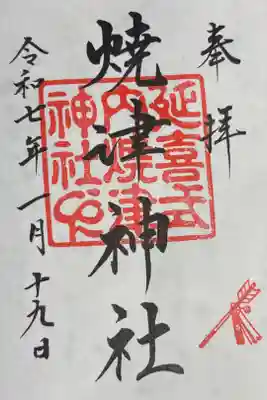 奉拝
焼津神社
令和七年一月十九日
延喜式
内焼津
神社